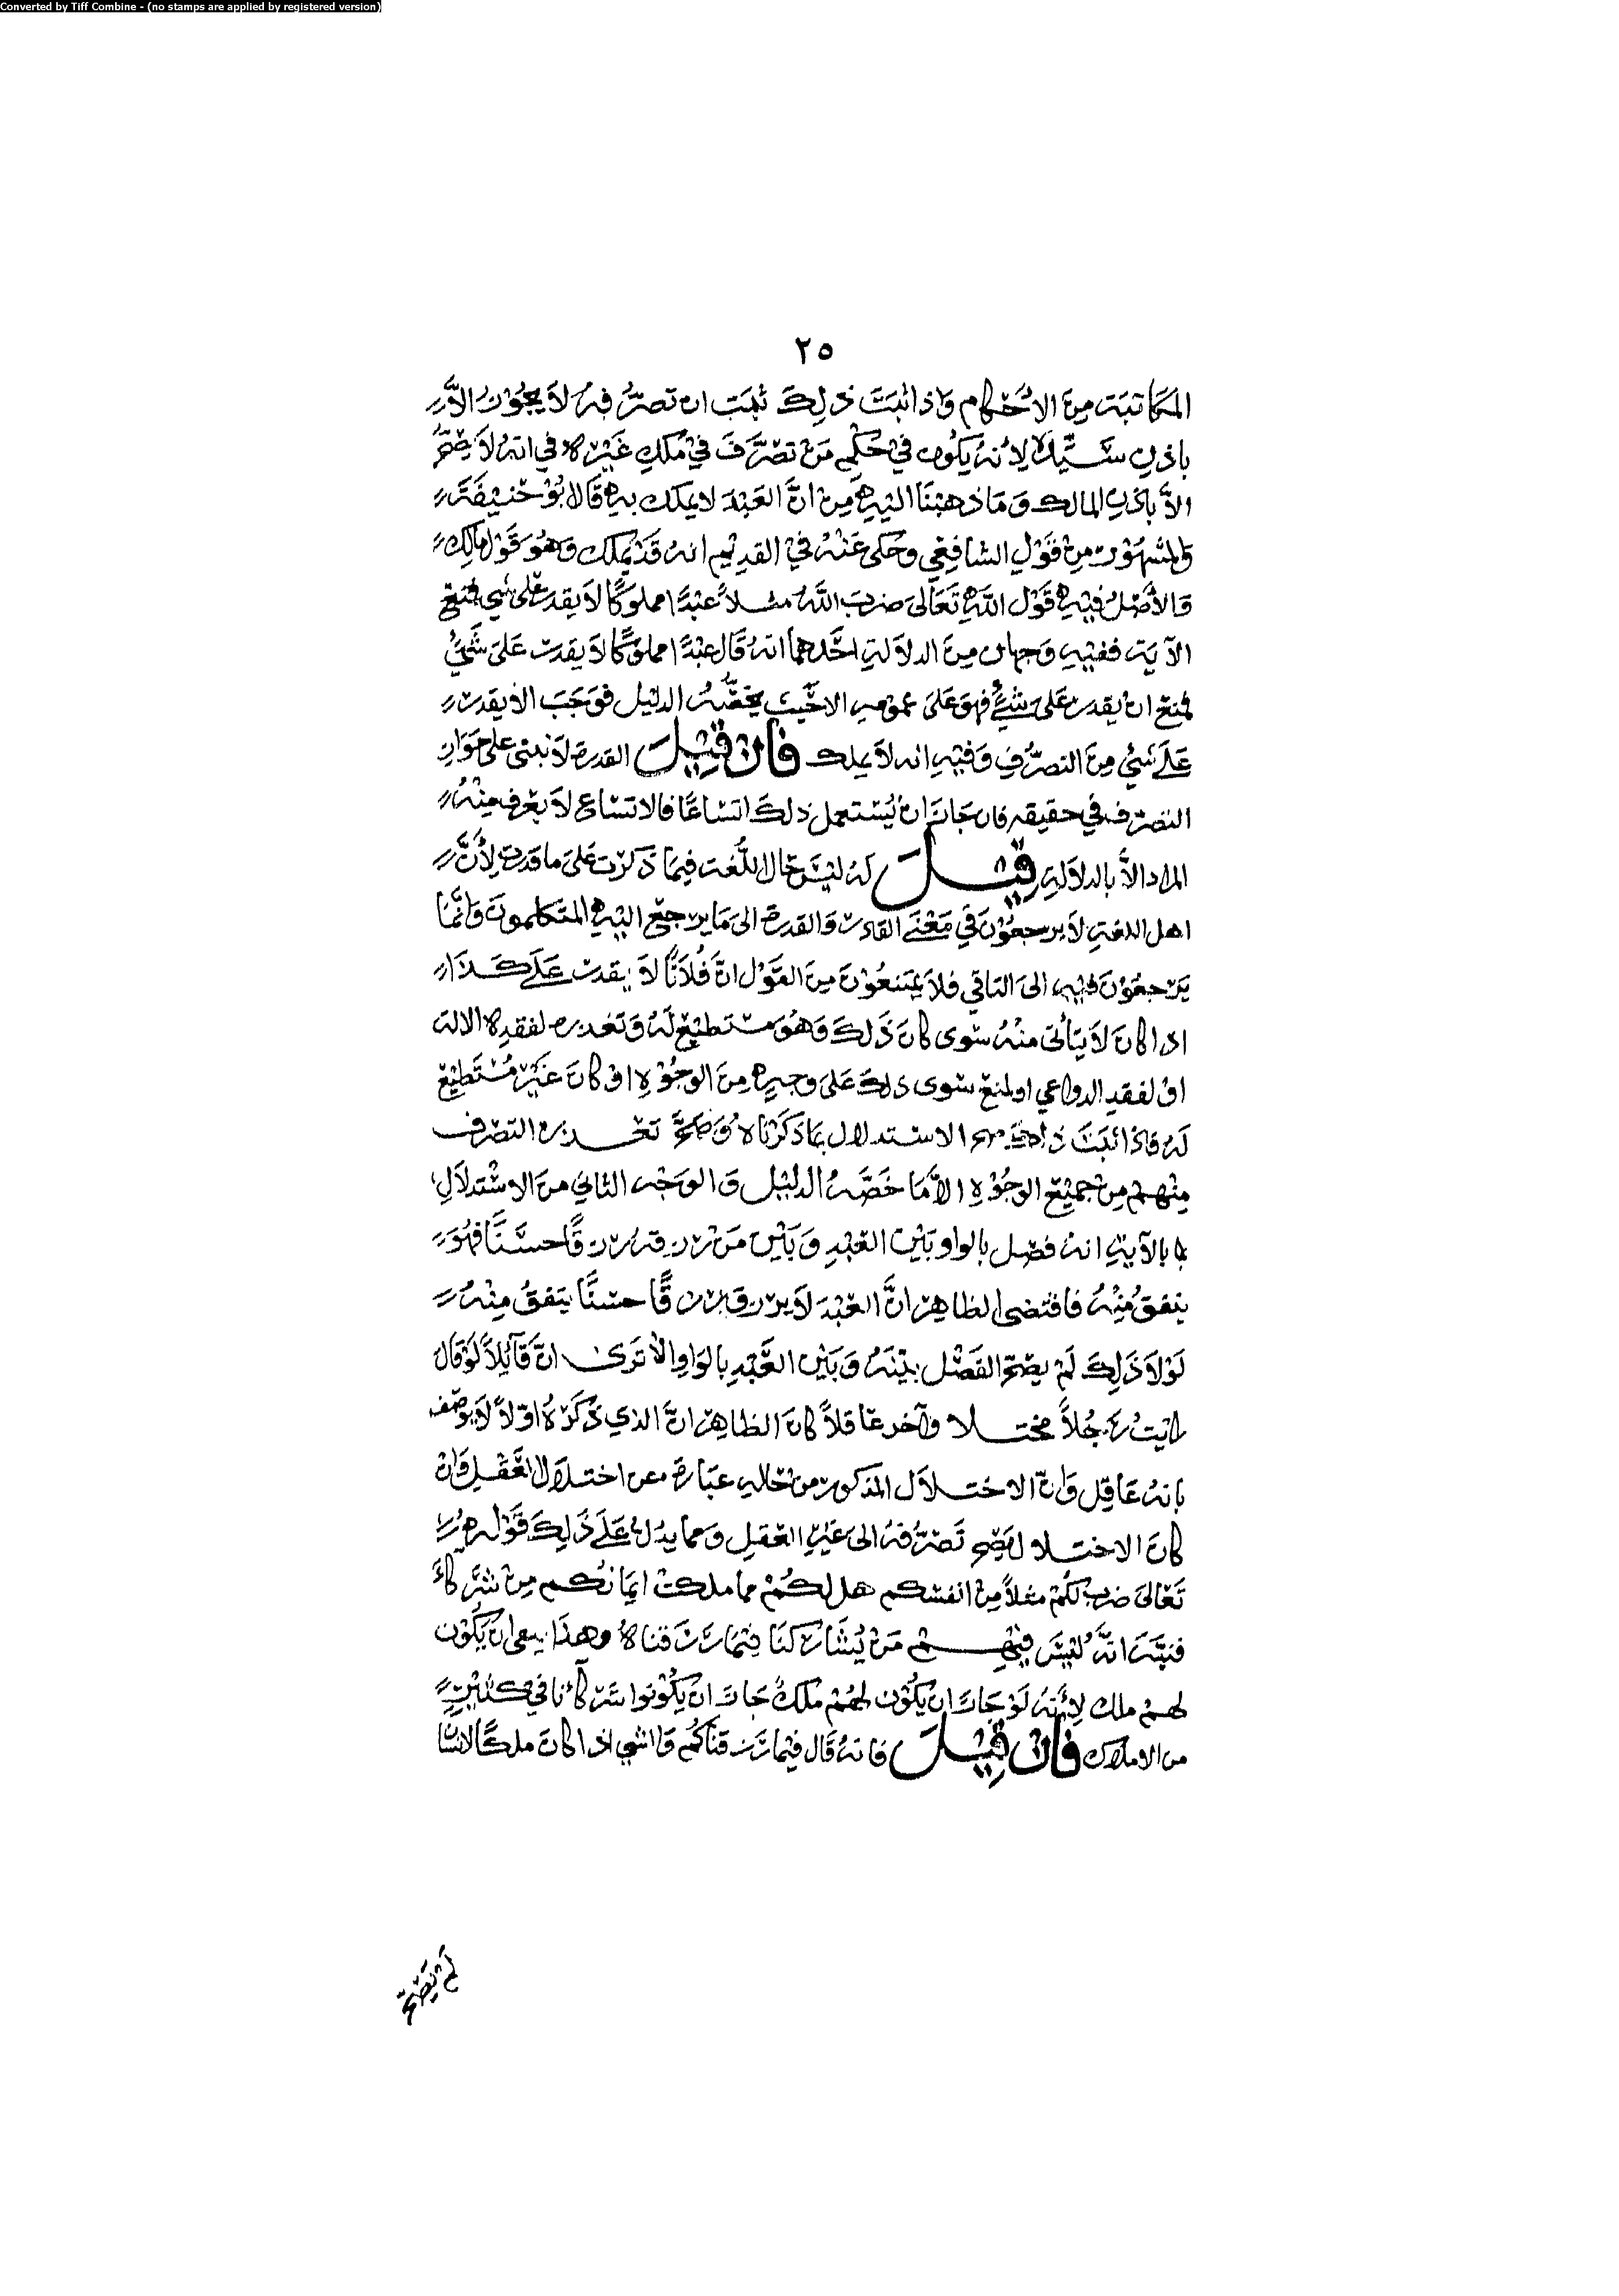 Converted by Tiff Combine - (no stamps are applied by registered version)
٢٥
المكاتبة من الاحكام واذا ثبت ذلك ثبت ان تصرفه لا يجوز الا
باذن سيده لأنه يكون في حكم من تصرف في ملك غيره في انه لا يصح
الا باذن المالك وما ذهبنا اليه من ان العبد لا يملك به قال ابو حنيفة
والمشهور من قول الشافعي وحكى عنه في القديم انه قد يملك وهو قول مالك
والأصل فيه قول الله تعالى ضرب الله مثلاً عبدًا مملوكًا لا يقدر على شي فمنع
الآية ففيه وجهان من الدلالة احدهما انه قال عبدًا مملوكًا لا يقدر على شيء
فمنع ان يقدر على شيء فهو على عمومه الا حيث يخصه الدليل فوجب الا يقدر
على شيء من التصرف وفيه انه لا يملك فان قيل القدرة لا تبنى على جواز
التصرف في حقيقه فان جاز ان يستعمل ذلك اتساعًا فالاتساع لا يعرف منه
المراد الا بالدلالة قيل له ليس حال اللغة فيما ذكرت على ما قدرت لأن
اهل اللغة لا يرجعون في معنى القادر والقدرة الى ما يرجع اليه المتكلمون وانما
يرجعون فيه الى التاتي فلا يمتنعون من القول ان فلانًا لا يقدر على كذا
اذا كان لا يتأتى منه سوى كان ذلك وهو مستطيع له وتعذره لفقده الالة
او لفقد الدواعي او لمنع سوى ذلك على وجه من الوجوه او كان غير مستطيع
له فاذا ثبت ذلك الاستدلال بما ذكرناه وصح تعذر التصرف
منهم من جميع الوجوه الا ما خصه الدليل والوجه الثاني من الاستدلال
بالآية انه فصل بالواو بين العبد وبين من رزقه رزقًا حسنًا فهو
ينفق منه فاقتضى الظاهر ان العبد لا يرزق رزقًا حسنًا ينفق منه
لولا ذلك لم يصح الفصل بينه وبين العبد بالواو الا ترى ان قائلاً لو قال
رايت رجلاً مختلا وآخر عاقلاً كان الظاهر ان الذي ذكره اولاً لا يوصف
بانه عاقل وان الاختلال المذكور من حاله عبارة عن اختلال العقل وان
كان الاختلال يصح تصرفه الى غير العقل ومما يدل على ذلك قوله
تعالى ضرب لكم مثلاً من انفسكم هل لكم مما ملكت ايمانكم من شركاء
فنبه انه ليس فيهم من يشاركنا فيما رزقناه وهذا ينفي ان يكون
لهم ملك لأنه لو جاز ان يكون لهم ملك جاز ان يكونوا شركآءنا في كثير
من الاملاك فان قيل فانه قال فيما رزقناكم والشي اذا كان ملكًا لانسان
لم يصح